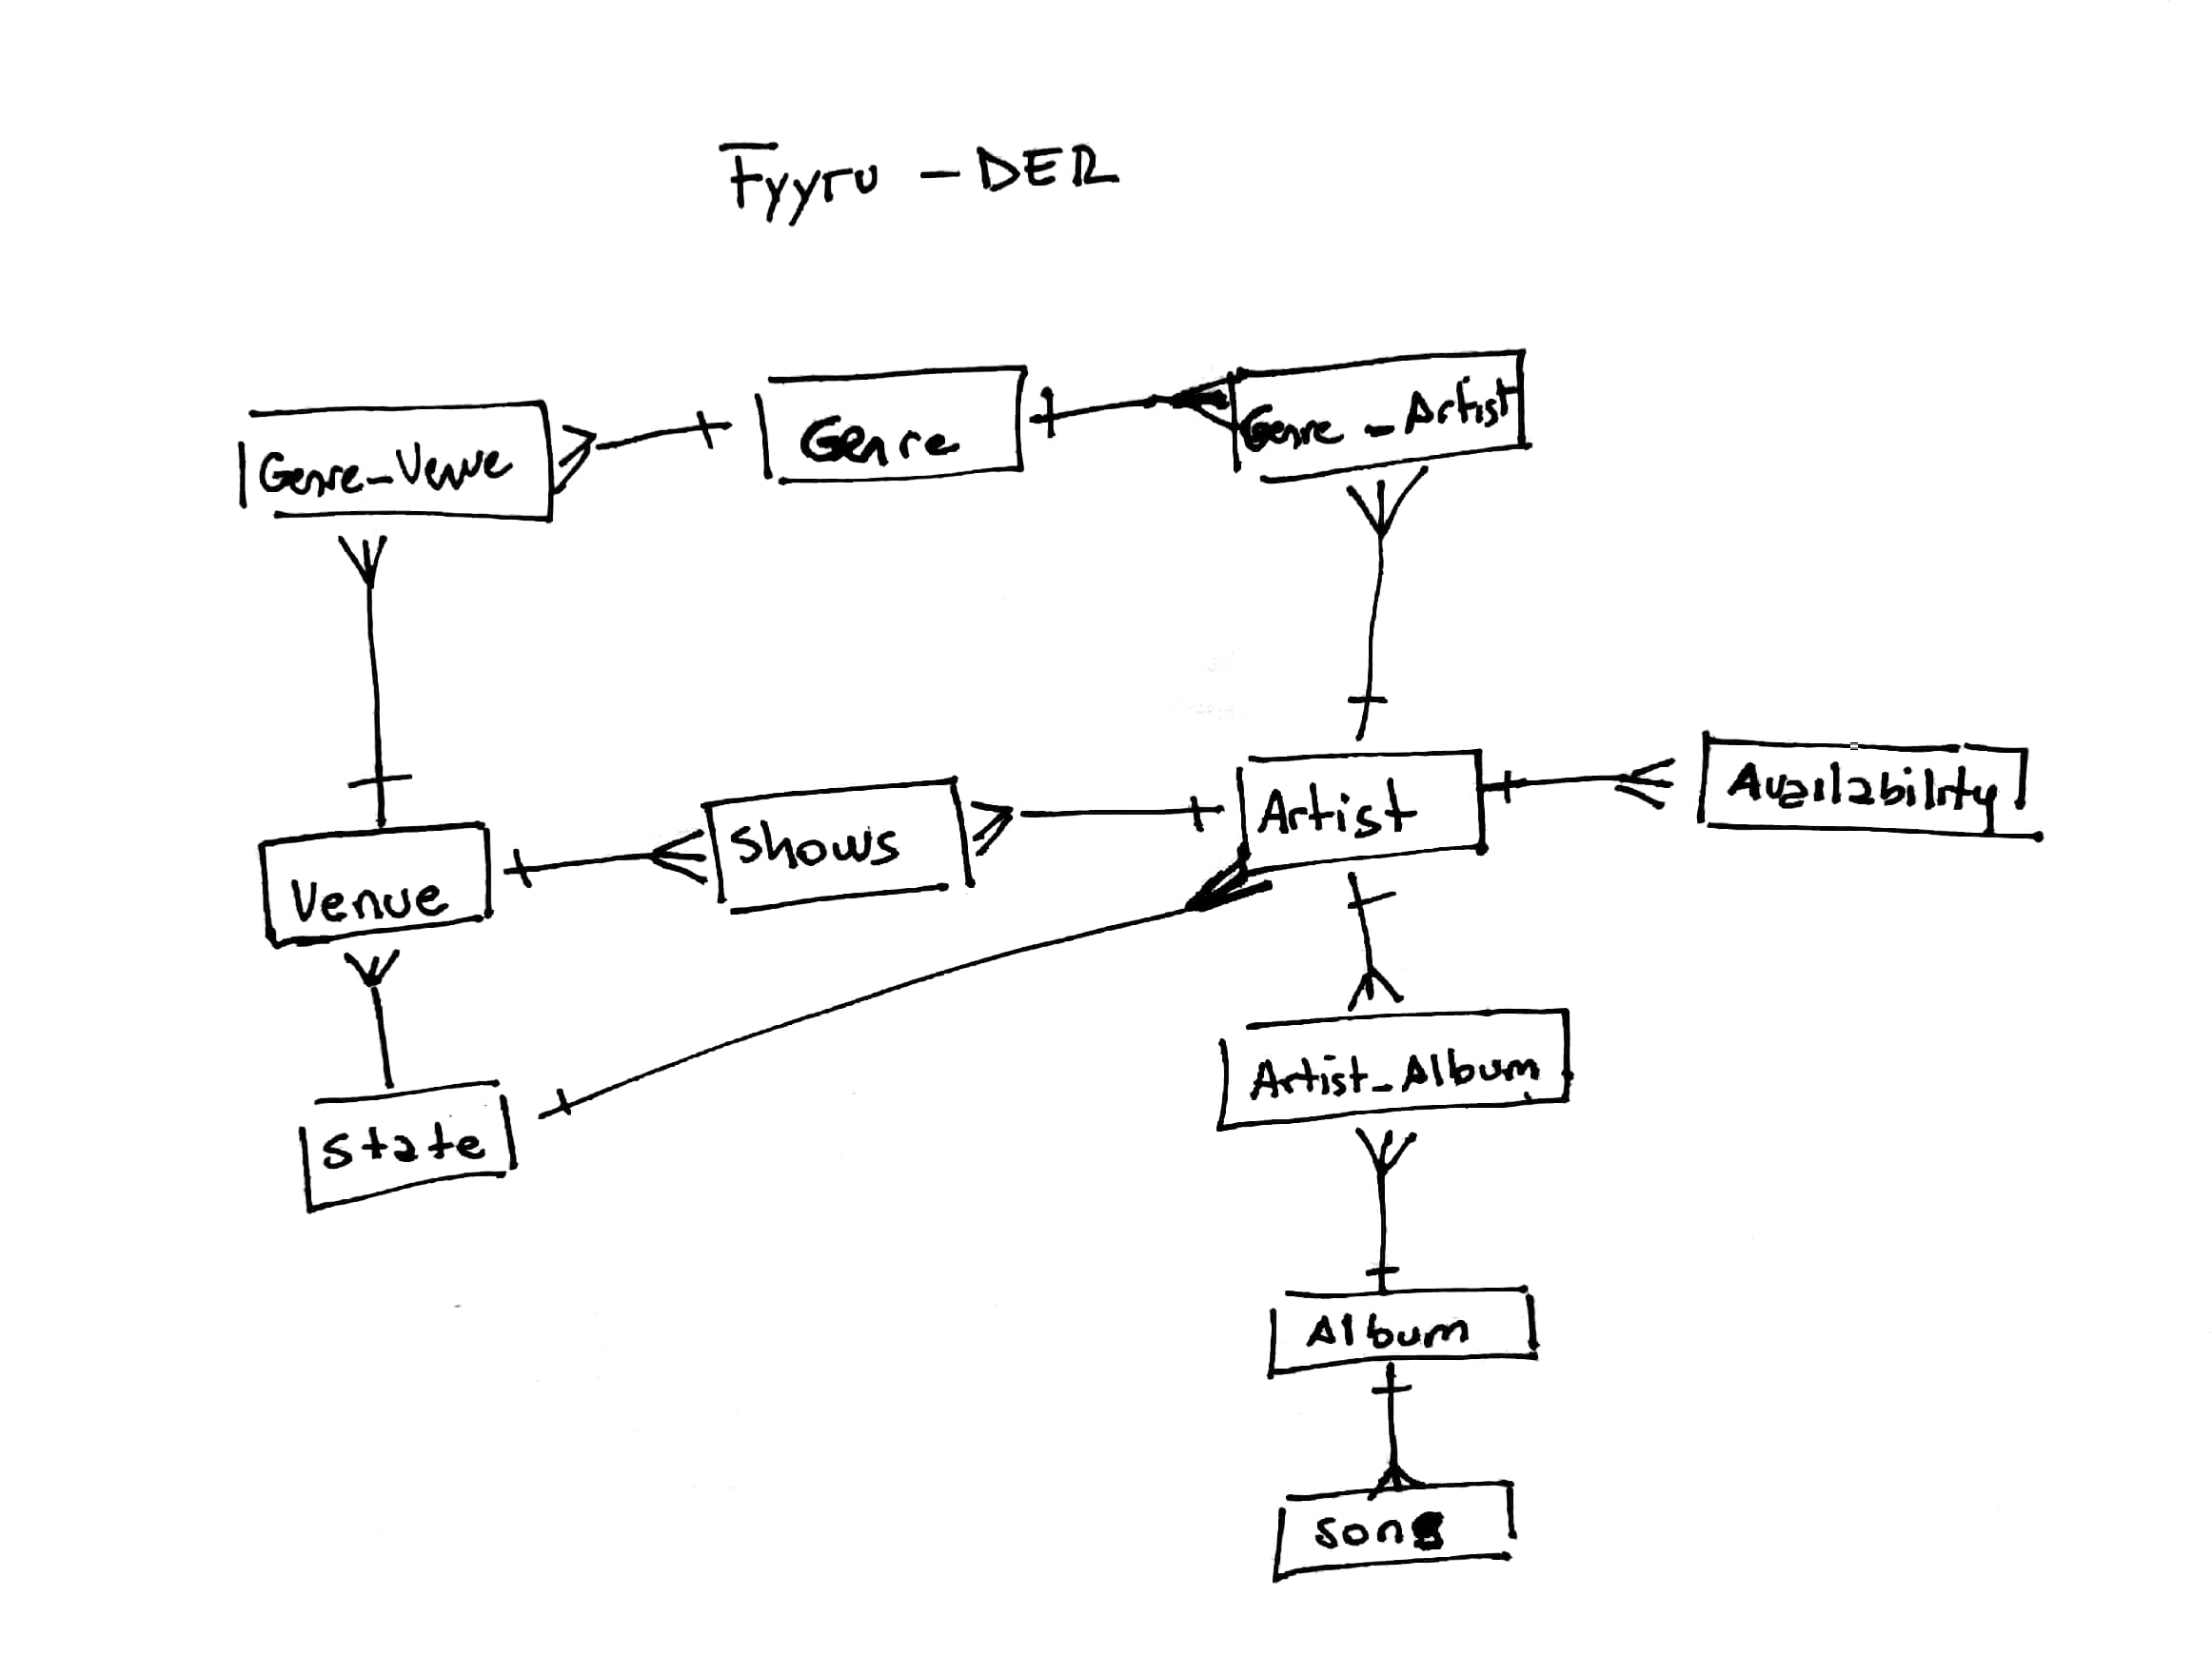 Fyyru - DER
Genre-Venue
Genre
Genre-Artist
Venue
Shows
Artist
Availability
State
Artist-Album
Album
Song